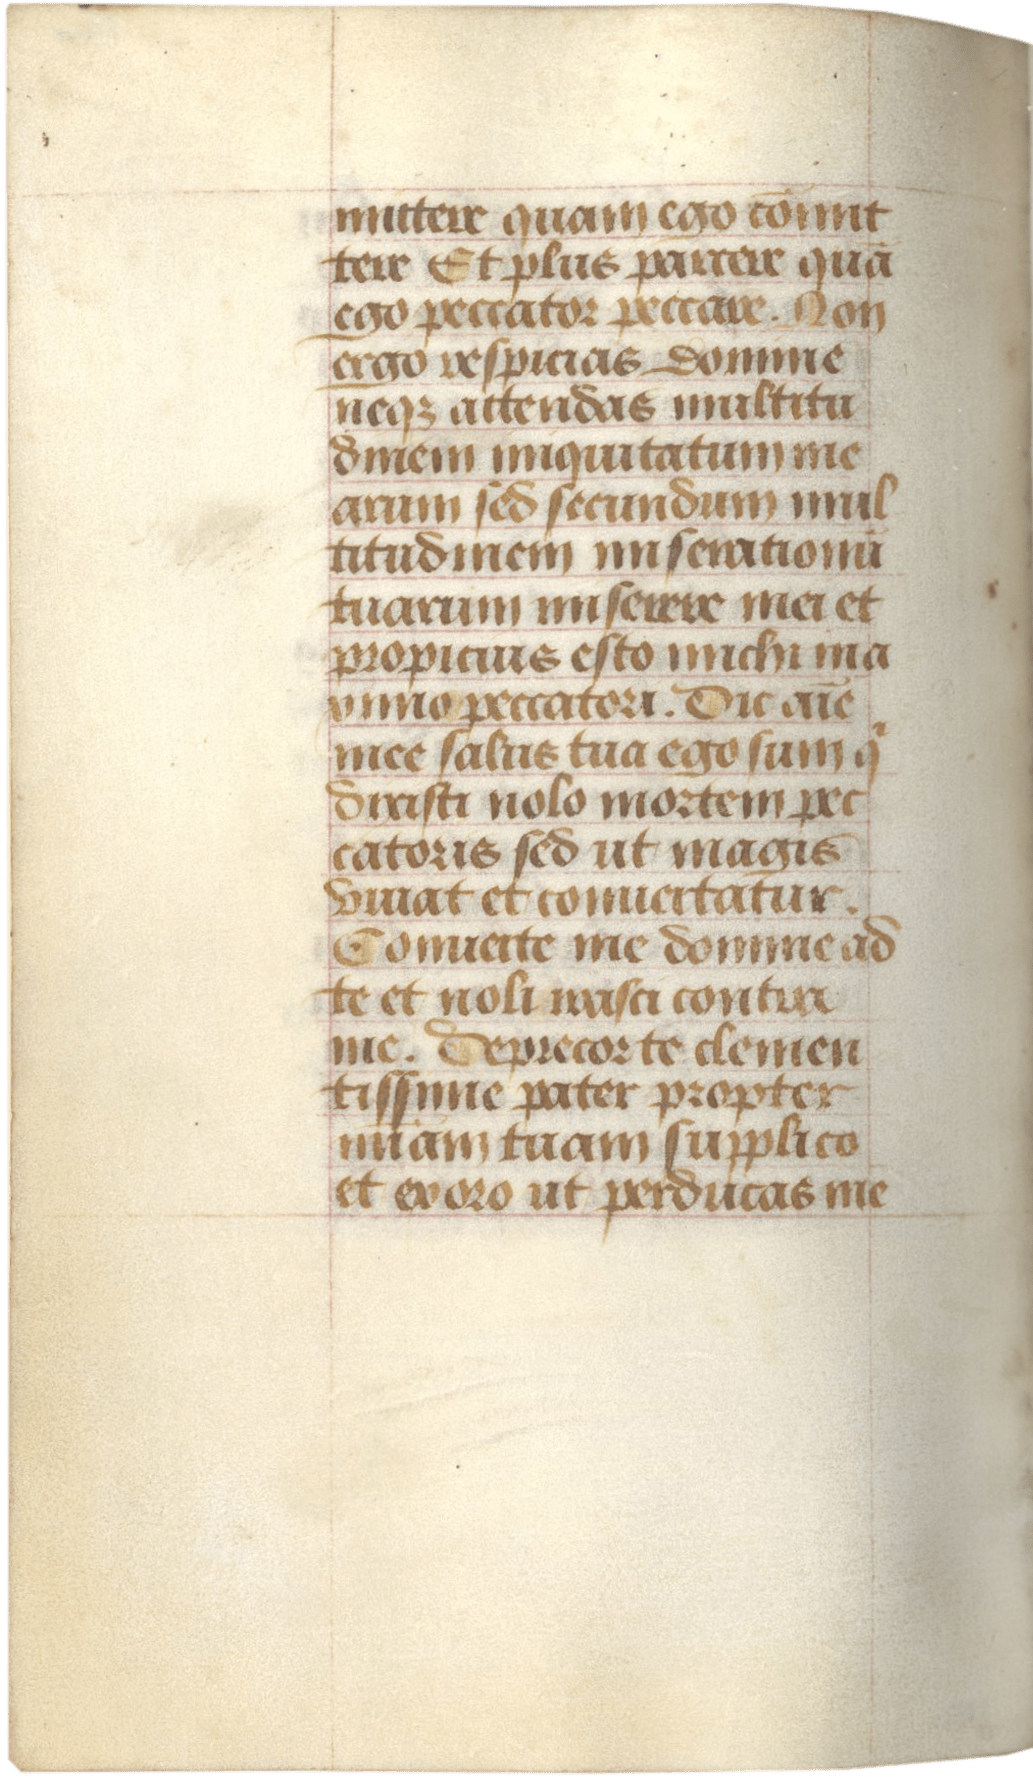 mittere quam ego co᷑mit
tere Et plus parcere quā
ego peccator peccare. Non
ergo respicias domine
neqꝫ attendas multitu
dinem iniquitatum me
arum sed secundum mul
titudinem miserationū
tuarum miserere mei et
propicius esto michi ma
ximo peccatori. Dic aīe
mee salus tua ego sum qͥ
dixisti nolo mortem pec
catoris sed ut magis
viuat et conuertatur.
Conuerte me domine ad
te et noli irasci contra
me. Deprecor te clemen
tissime pater propter
miām tuam supplico
et exoro ut perducas me